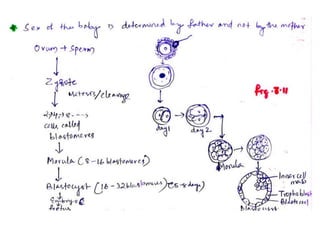 * Sex of the baby is determined by father and not by the mother
Ovum + sperm
Zygote
Mitosis/cleavage
cells called
blastomeres
day1
day 2
fig. 8.11
Morula (8-16 blastomeres)
Morula
Blastocyst (16-32 blastomeres)
Embryo
Inner cell
mass
Trophoblast
Blastocoel
Blastocyst